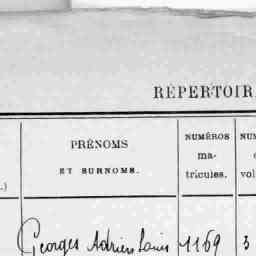 RÉPERTOIR
PRÉNOMS
ET SURNOMS.
NUMÉROS
ma-
tricules.
NUM
vol
.)
Georges Adrien Louis 1169 3